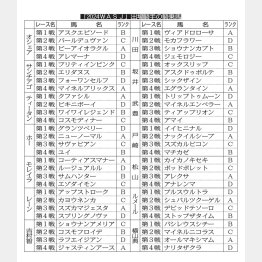 『2024WASJ』出場騎手の騎乗馬
レース名 馬 名 ランク
第1戦 アスクエピソード B
第2戦 パールデュヴァン C
第3戦 ピーアイオラタル A
第4戦 アレマーナ D
第1戦 プリティインピンク C
第2戦 エリダヌス B
第3戦 フォーワンセルフ D
第4戦 マイネルプリックス A
第1戦 タガシル A
第2戦 ビキニボーイ D
第3戦 ワイワイレジェンド B
第4戦 コスモディナー C
第1戦 グランベリー D
第2戦 ニューノーマル A
第3戦 サヴァビアン C
第4戦 ユイ B
第1戦 コーティアスマナー A
第2戦 ルージュアルル D
第3戦 サムハンター B
第4戦 エゾダイモン C
第1戦 アップストローク B
第2戦 カヨウネンカ C
第3戦 スズカマジェスタ A
第4戦 スプリングノヴァ D
第1戦 ショウナンアメリア C
第2戦 B
第3戦 ラフエイジアン D
第4戦 ジャスティンアース A
レース名 馬 名 ランク
川田
第1戦 ヴィアドロローサ A
第2戦 モカフラワー D
第3戦 ショウナンカブト B
第4戦 ジュモロジー C
坂井
第1戦 オックスリップ C
第2戦 アスクドゥポルテ B
第3戦 シックザイン D
第4戦 エグランタイン A
武豊
第1戦 トリップトゥムーン D
第2戦 マイネルエンペラー A
第3戦 ティアップリオン C
第4戦 アマイ B
第1戦 イイヒニナル D
第2戦 ナックイルシーブ A
第3戦 スズカルビコン C
第4戦 マチカゼ B
松山
第1戦 カイカノキセキ B
第2戦 ポッドボレット C
第3戦 アレクサ A
第4戦 アナレンマ D
ルメール
第1戦 プルスウルトラ D
第2戦 シュバルツクーゲル A
第3戦 デビッドテソーロ C
第4戦 ストップザタイム B
横山典
第1戦 パシレウスシチー B
第2戦 マイネルニコラス C
第3戦 オールマキシマム A
第4戦 ナリタザクラ D